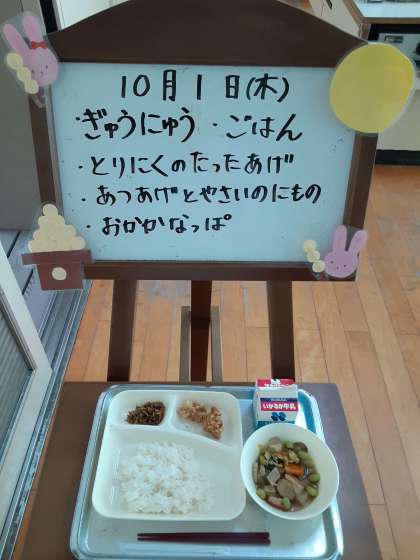 10月1日(木)
・ぎゅうにゅう ・ごはん
・とりにくのたったあげ
・あつあげとやさいのにもの
・おかかなっぱ
いかるが牛乳